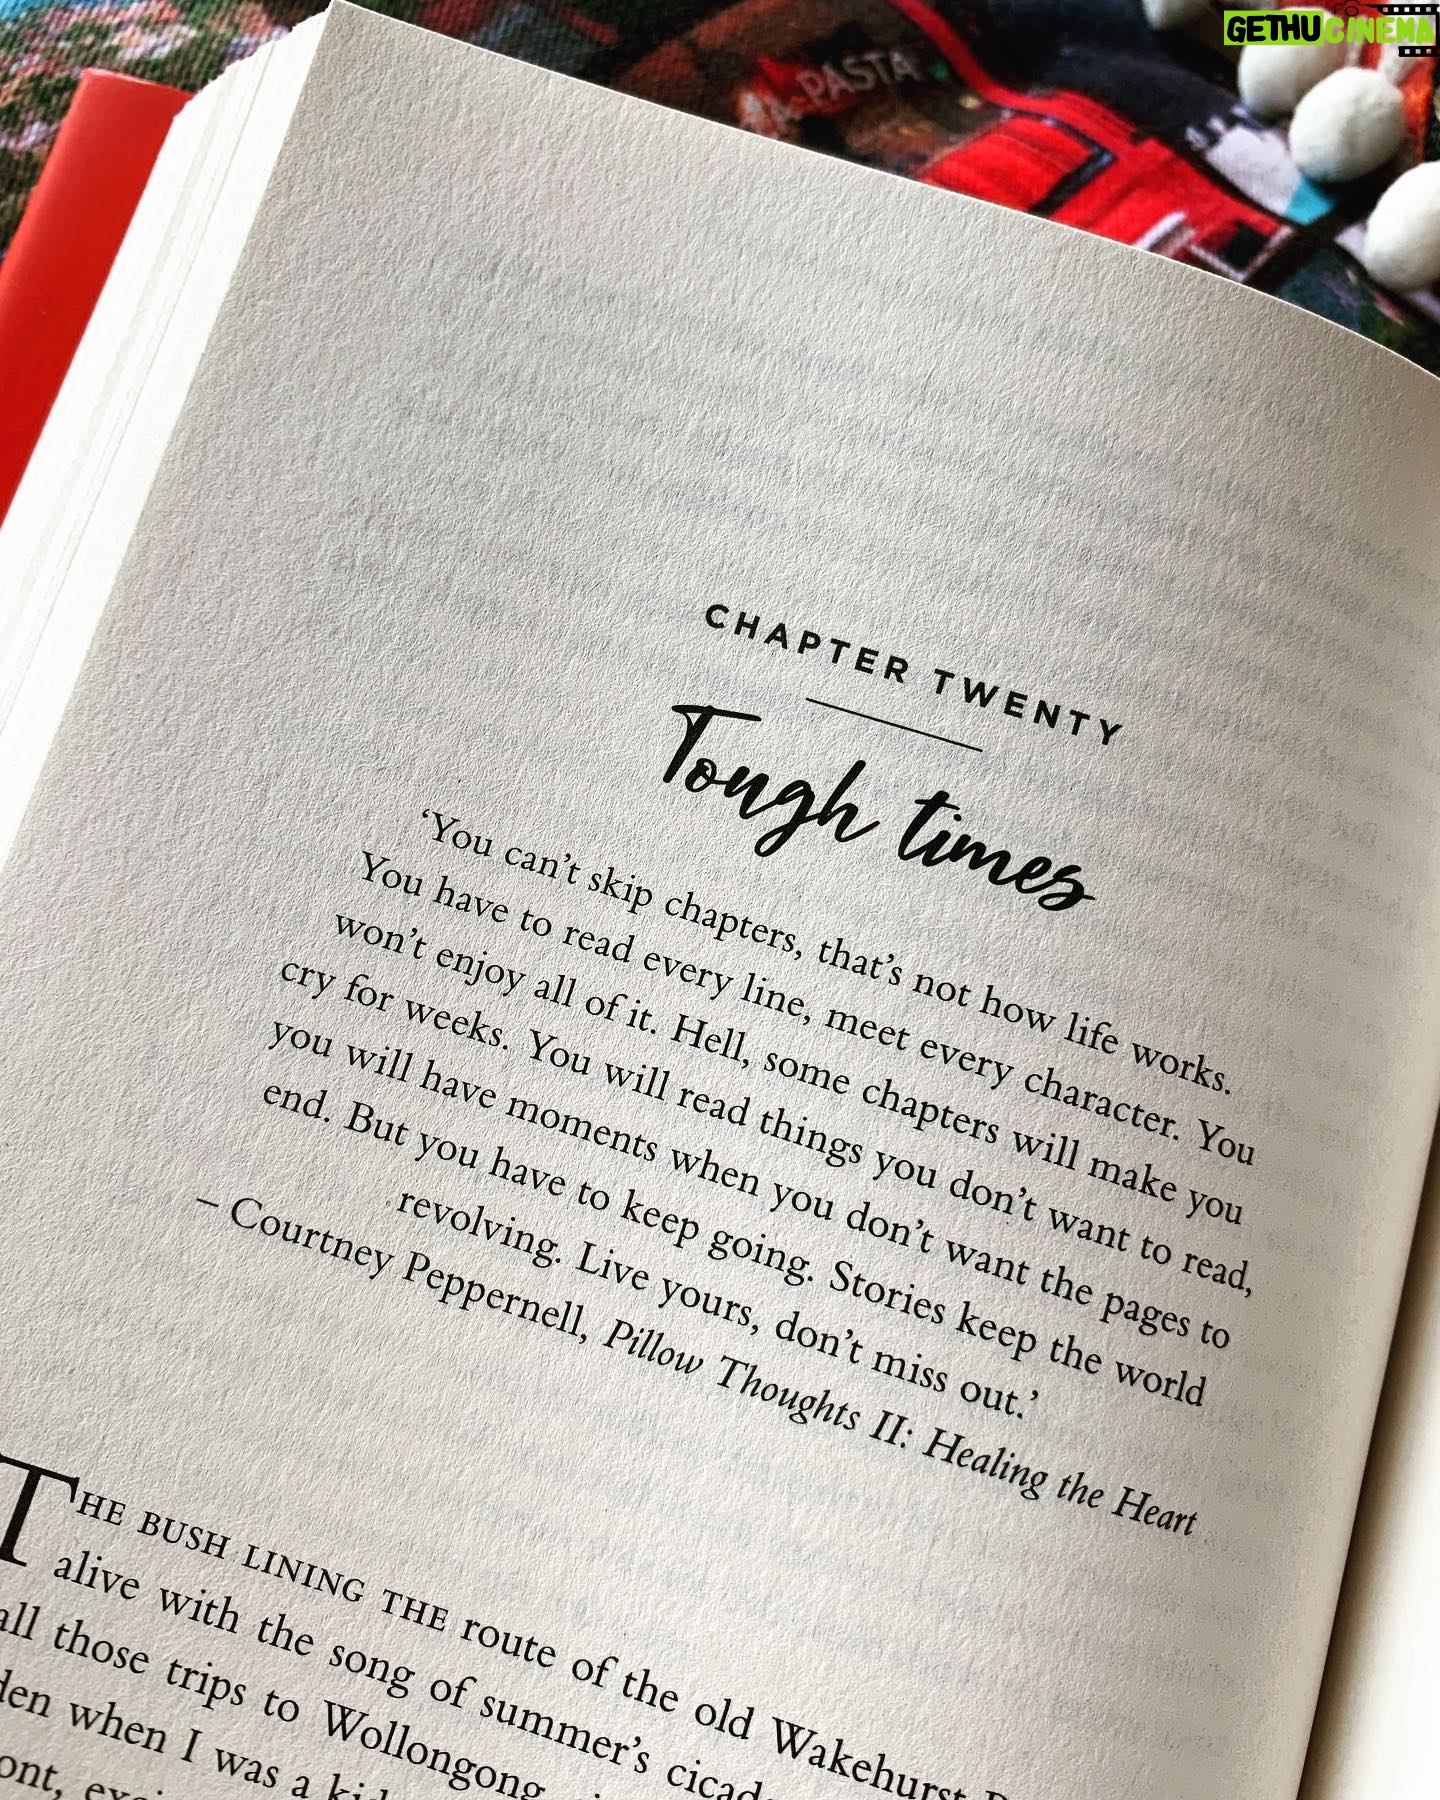 GETHU CINEMA
PASTA
CHAPTER TWENTY
Tough times
‘You can’t skip chapters, that’s not how life works.
You have to read every line, meet every character. You
won’t enjoy all of it. Hell, some chapters will make you
cry for weeks. You will read things you don’t want to read,
you will have moments when you don’t want the pages to
end. But you have to keep going. Stories keep the world
revolving. Live yours, don’t miss out.’
– Courtney Peppernell, Pillow Thoughts II: Healing the Heart
THE BUSH LINING THE route of the old Wakehurst
alive with the song of summer’s
all those trips to Wollongong
when I was a